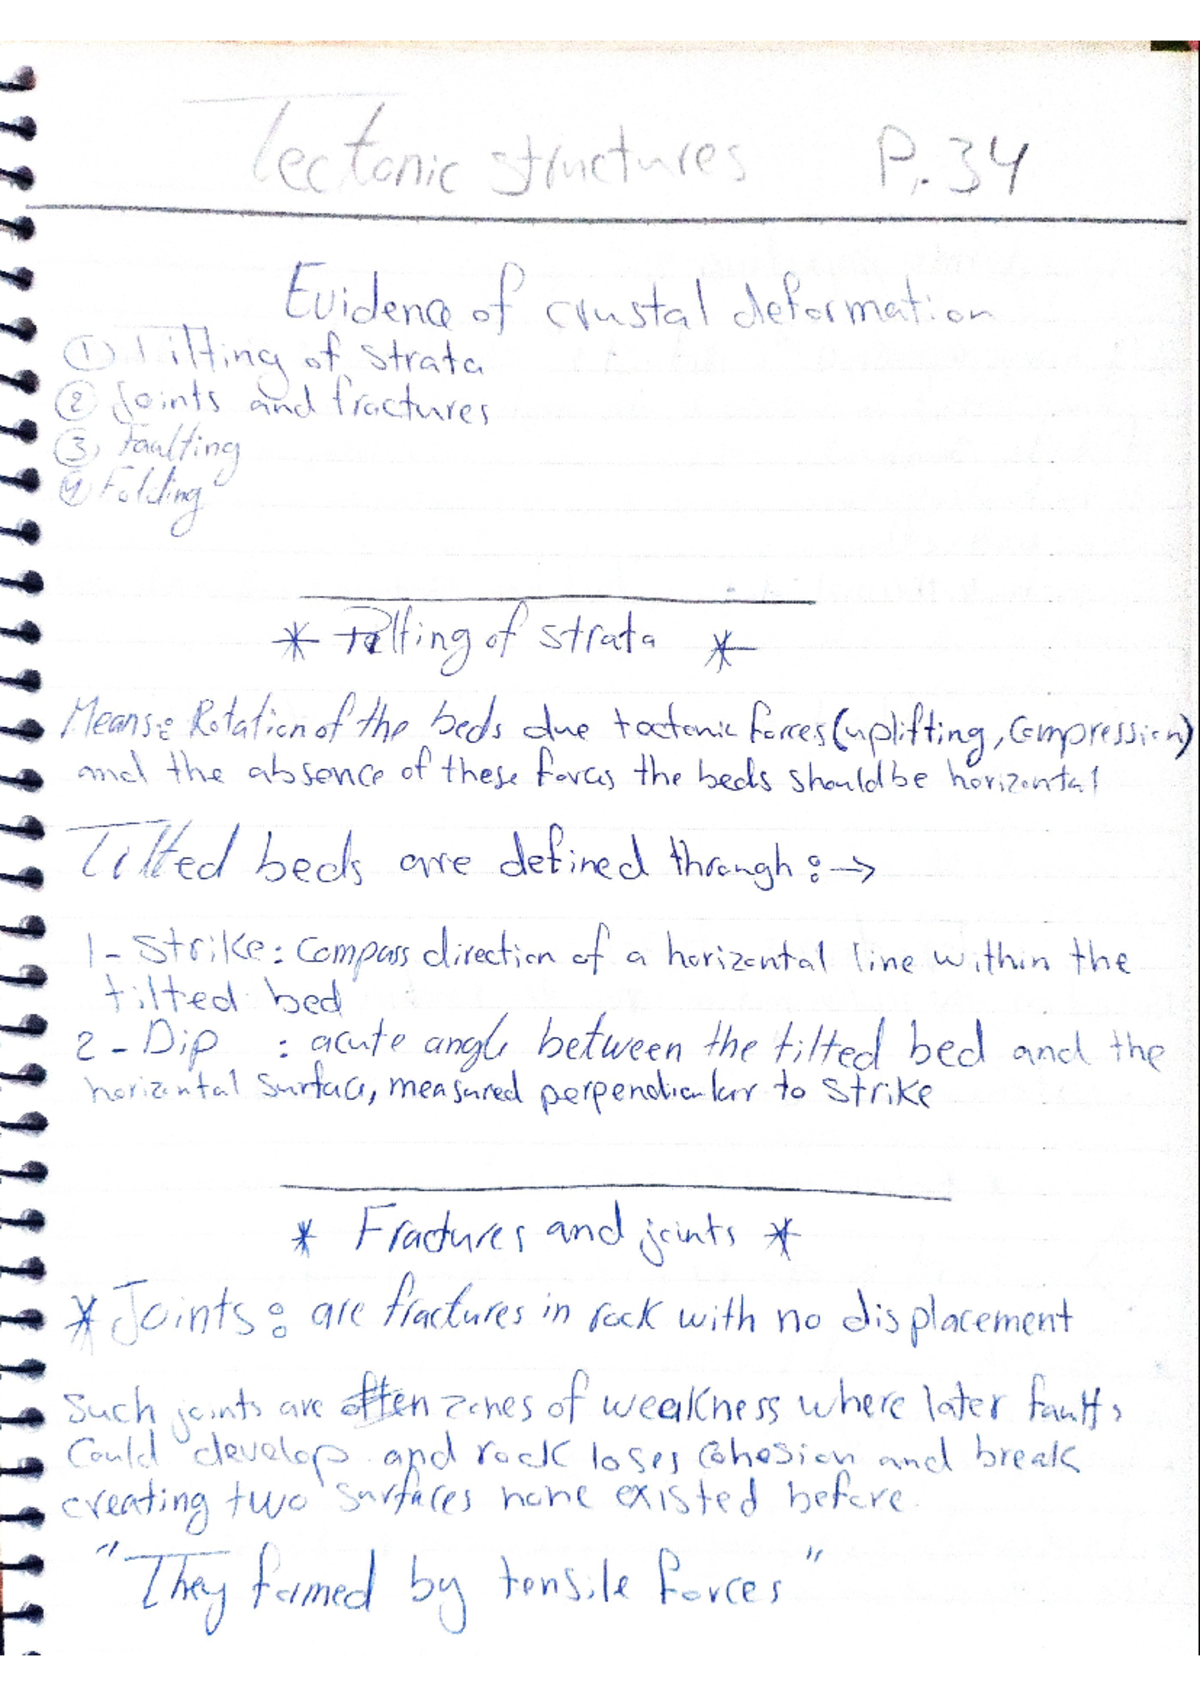 Tectonic structures P. 34
Evidence of crustal deformation
① Tilting of strata
② Joints and fractures
③ Faulting
④ Folding
* Tilting of strata *
Means: Rotation of the beds due tectonic forces (uplifting, Compression)
and the absence of these forces the beds should be horizontal
Tilted beds are defined through: →
1 - Strike: Compass direction of a horizontal line within the
tilted bed
2 - Dip : acute angle between the tilted bed and the
horizontal surface, measured perpendicular to strike
* Fractures and joints *
* Joints: are fractures in rock with no displacement
Such joints are often zones of weakness where later faults
Could develop and rock loses Cohesion and break
creating two surfaces none existed before.
"They formed by tensile forces"